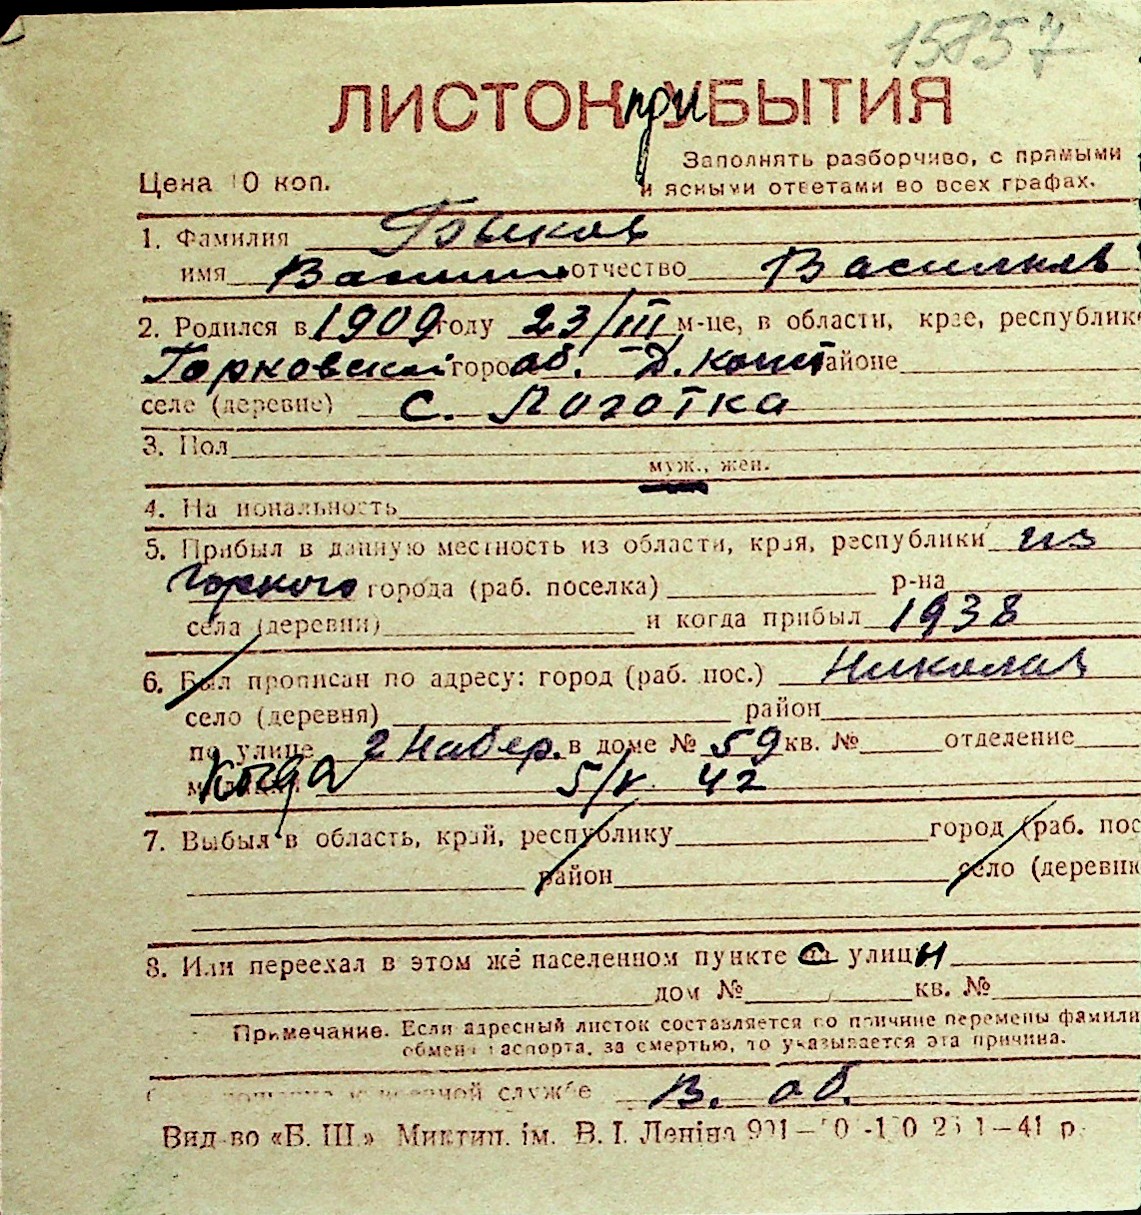 15857
ЛИСТОК при УБЫТИЯ
Заполнять разборчиво, с прямыми
Цена 10 коп.
и ясными ответами во всех графах.
1. Фамилия Быков
имя Василий отчество Васильев
2. Родился в 1909 году 23/III м-це, в области, крае, республике
Горковской горо об. Д. конст районе
селе (деревне) с. Логотка
3. Пол
муж., жен.
4. Национальность
5. Прибыл в данную местность из области, края, республики из
Горкого города (раб. поселка) р-на
села (деревни) и когда прибыл 1938
6. Был прописан по адресу: город (раб. пос.) Николаев
село (деревня) район
по улице 2 Набер. в доме № 59 кв. № отделение
когда 5/V 42
7. Выбыл в область, край, республику город (раб. пос
район село (деревня
8. Или переехал в этом же населенном пункте с улицы
дом № кв. №
Примечание. Если адресный листок составляется по причине перемены фамили
обмена паспорта, за смертью, то указывается эта причина.
службе В. об.
Вид-во «Б. Ш.» Миктип. ім. В. І. Леніна 1—41 р.